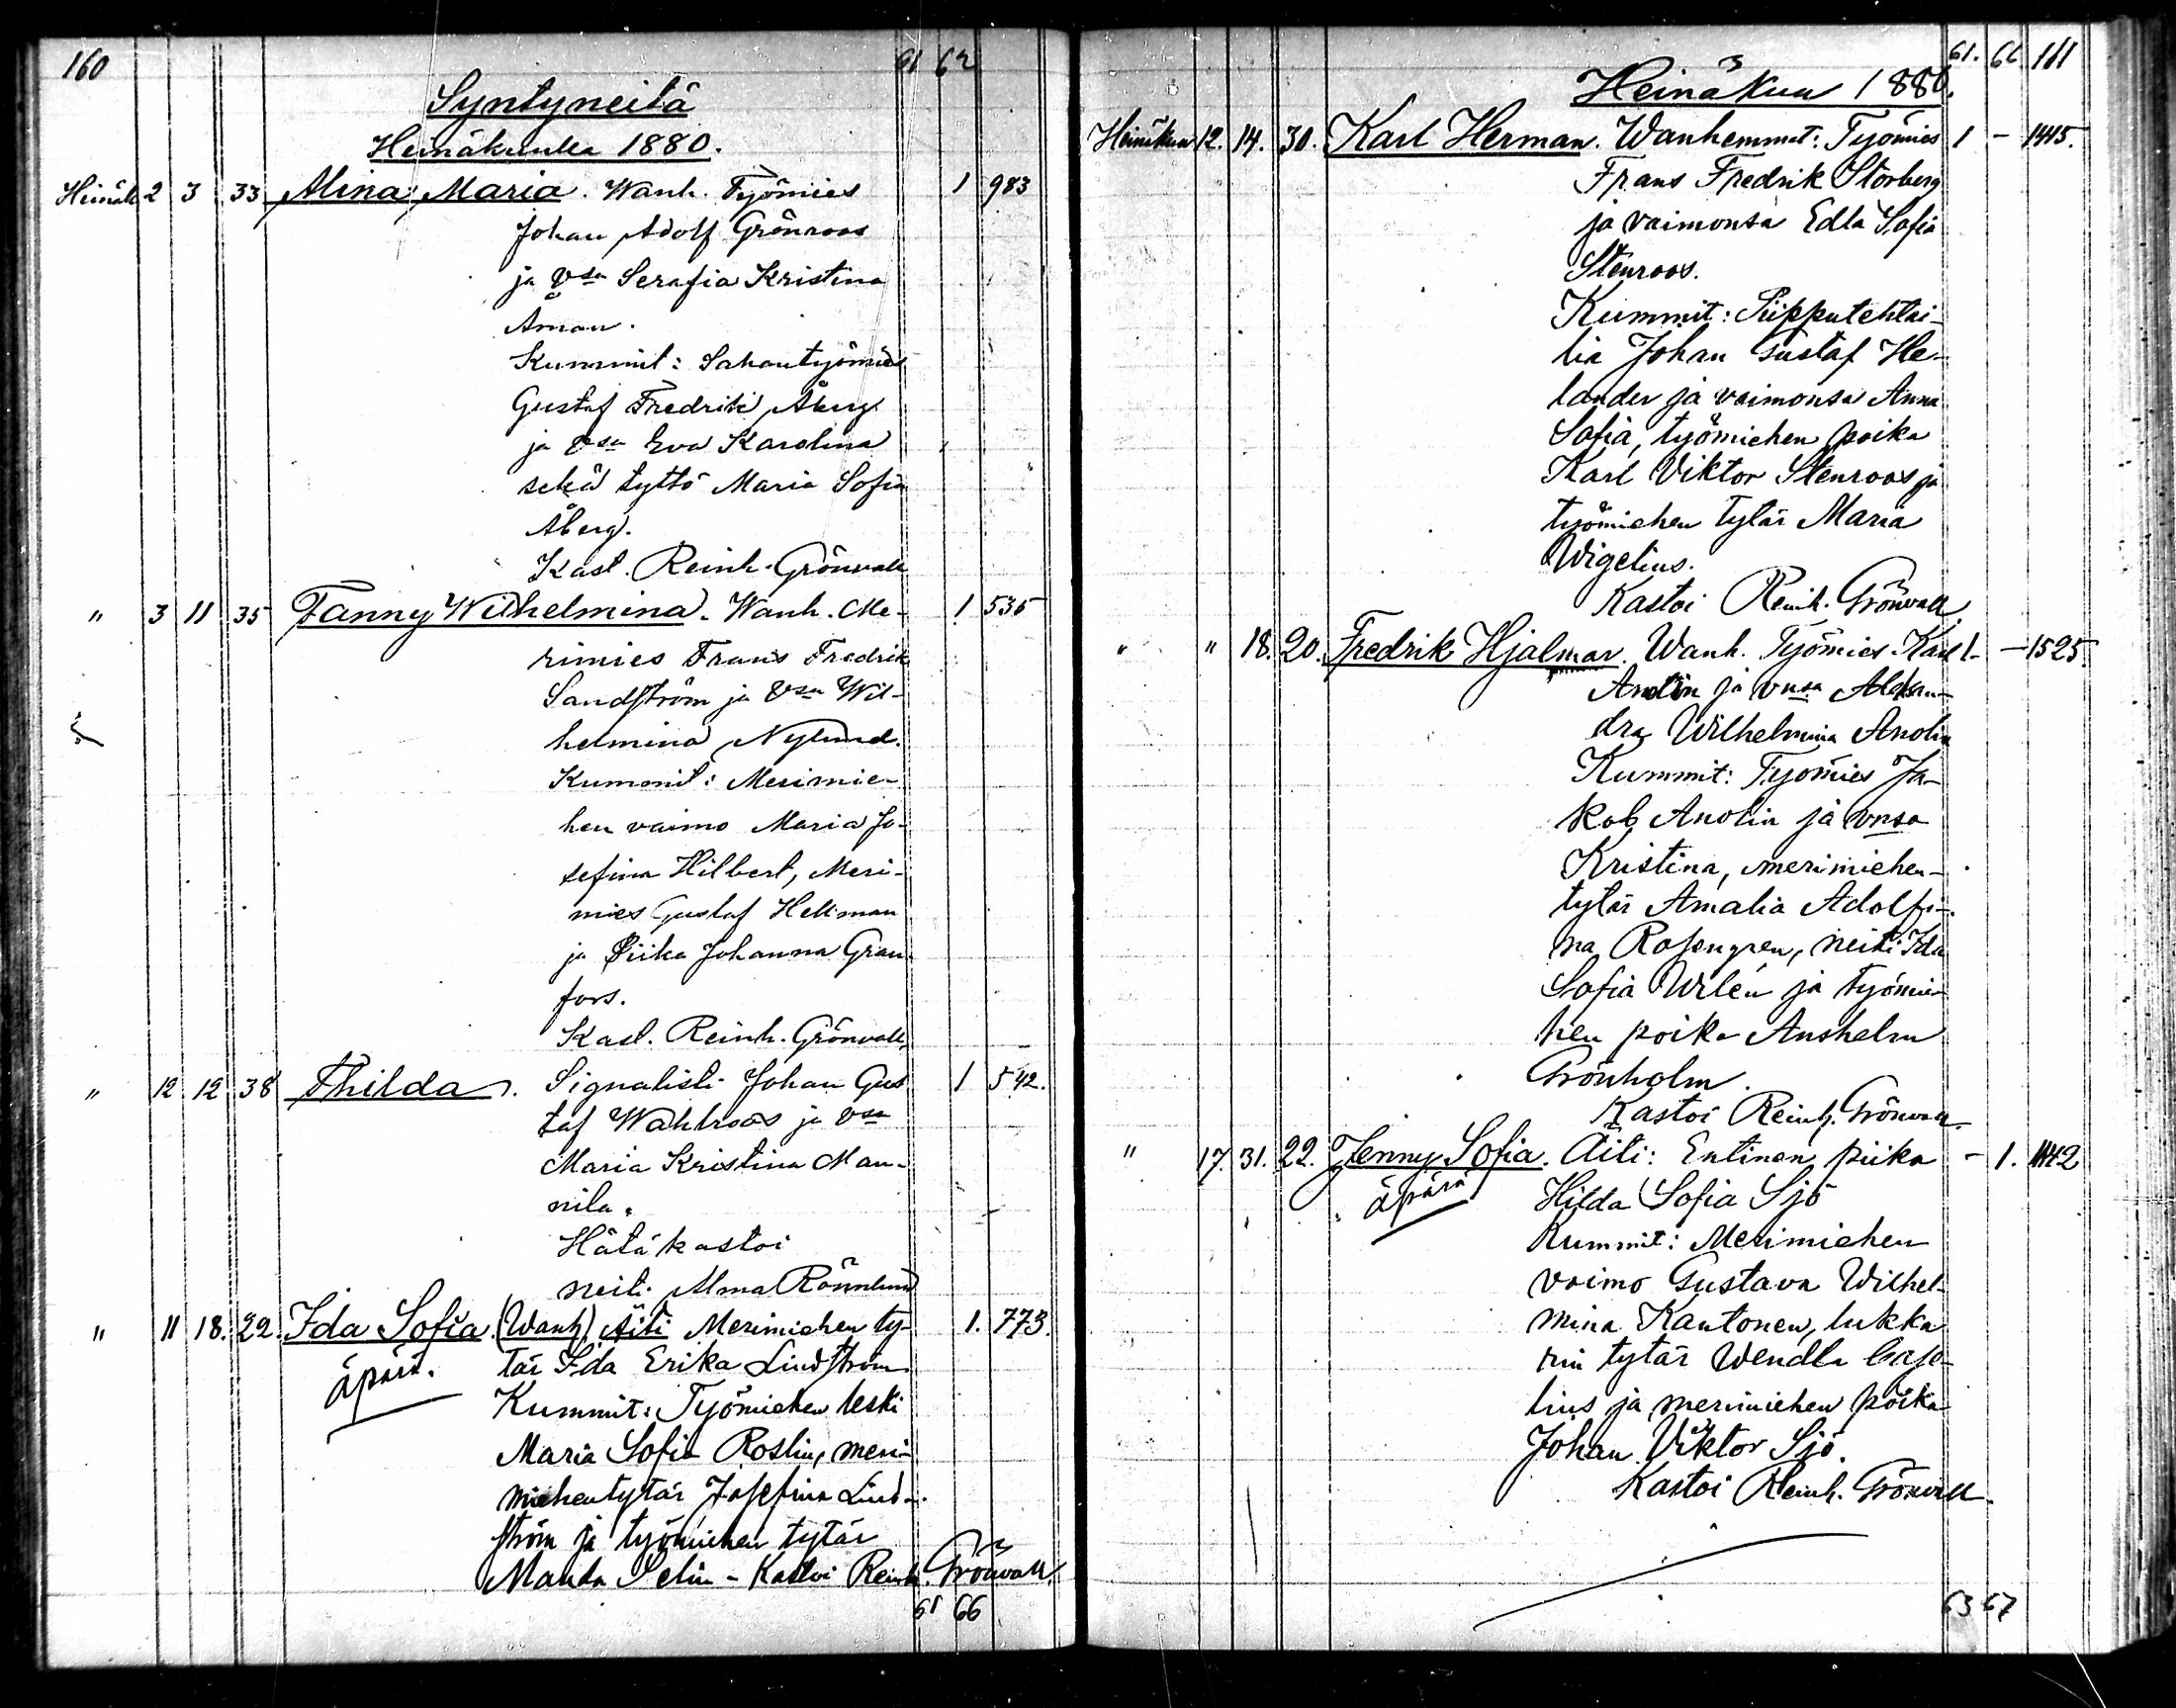 160 61 62
Syntyneitä
Heinäkuulla 1880.
Heinäk 2 3 33 Alina Maria. Wanh. Työmies 1 983
Johan Adolf Grönroos
ja vsa Serafia Kristina
Åman.
Kummit: Sahantyömies
Gustaf Fredrik Åberg
ja vsa Eva Karolina
sekä tyttö Maria Sofia
Åberg.
Kast. Reinh. Grönvall
" 3 11 35 Fanny Wilhelmina. Wanh. Me- 1 535
rimies Frans Fredrik
Sandström ja vsa Wil-
helmina Nylund.
Kummit: Merimie-
hen vaimo Maria Jo-
sefina Hilbert, Meri-
mies Gustaf Hellman
ja Piika Johanna Gran-
fors.
Kast. Reinh. Grönvall,
" 12 12 38 Thilda. Signalisti Johan Gus 1 542.
taf Wahlroos ja vsa
Maria Kristina Man-
nila.
Hätä kastoi
neiti Alma Rönnlund
" 11 18. 22. Ida Sofia (Wanh) Äiti Merimiehen ty- 1. 773.
äpärä. tär Ida Erika Lindström
Kummit: Työmiehen leski
Maria Sofia Roslin, meri-
miehentytär Josefina Lind-
ström ja työmiehen tytär
Manda Selin - Kastoi Reinh. Grönvall.
61 66
61. 66 161
Heinäkuu 1880.
Heinäkuu 12. 14. 30. Karl Herman. Wanhemmat: Työmies 1 - 1415.
Frans Fredrik Storberg
ja vaimonsa Edla Sofia
Stenroos.
Kummit: Piipputehtai-
lia Johan Gustaf He-
lander ja vaimonsa Anna
Sofia, työmiehen poika
Karl Viktor Stenroos ja
työmiehen tytär Maria
Wigelius.
Kastoi Reinh. Grönvall
" " 18. 20. Fredrik Hjalmar. Wanh. Työmies Karl 1 - 1525
Anolin ja vnsa Aleksan-
dra Wilhelmina Anolin
Kummit: Työmies Ja-
kob Anolin ja vnsa
Kristina, merimiehen-
tytär Amalia Adolfi-
na Rosengren, neiti Ida
Sofia Wilén ja työmie-
hen poika Anshelm
Grönholm.
Kastoi Reinh. Grönvall.
" 17. 31. 22. Jenny Sofia. Äiti: Entinen piika - 1. 1442
äpärä Hilda Sofia Sjö
Kummit: Merimiehen
vaimo Gustava Wilhel-
mina Kantonen, lukka
rin tytär Wendla Case-
lius ja merimiehen poika
Johan Viktor Sjö.
Kastoi Reinh. Grönvall.
63 67